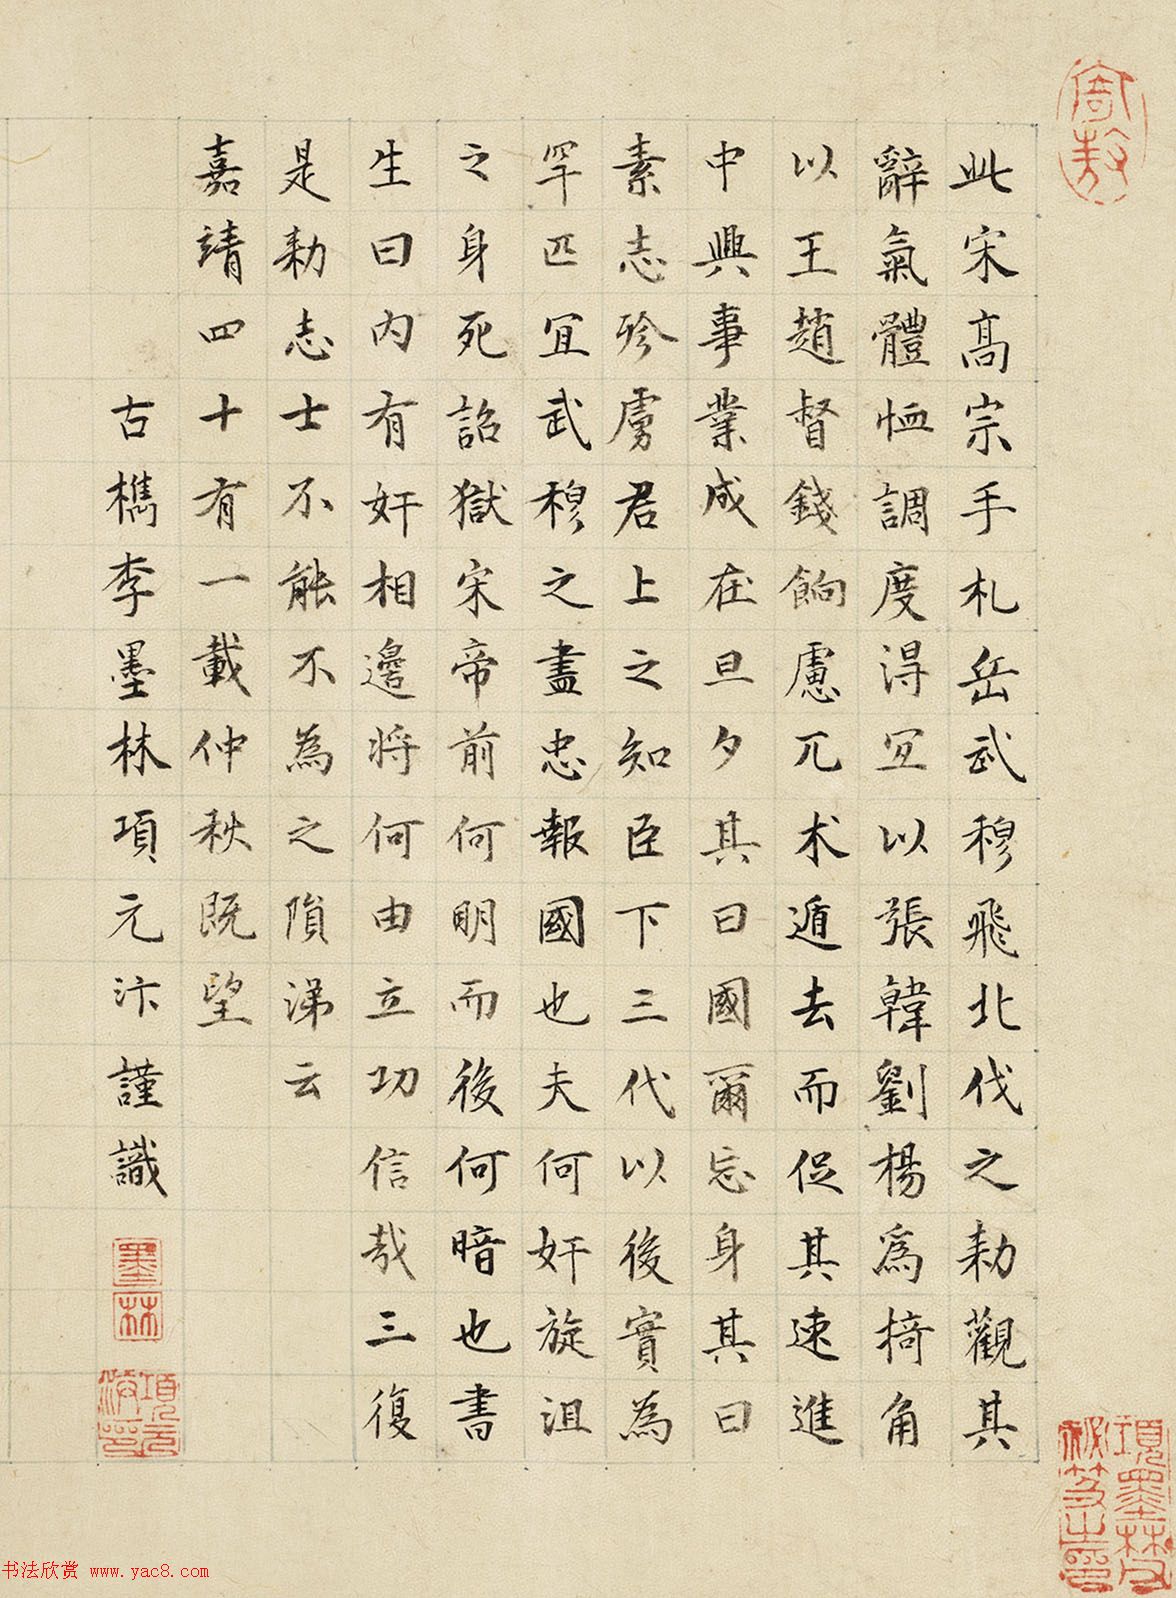 此宋髙宗手札岳武穆飛北伐之勑觀其
辭氣體恤調度得宜以張韓劉楊爲掎角
以王趙督錢餉慮兀术遁去而促其速進
中興事業成在旦夕其曰國爾忘身其曰
素志殄虜君上之知臣下三代以後實為
罕匹宜武穆之盡忠報國也夫何奸旋沮
之身死詔獄宋帝前何明而後何暗也書
生曰内有奸相邊将何由立功信哉三復
是勑志士不能不為之隕涕云
嘉靖四十有一載仲秋既望
古檇李墨林項元汴謹識
墨
林
項元汴印
項墨林父
祕笈之印
书法欣赏 www.yac8.com